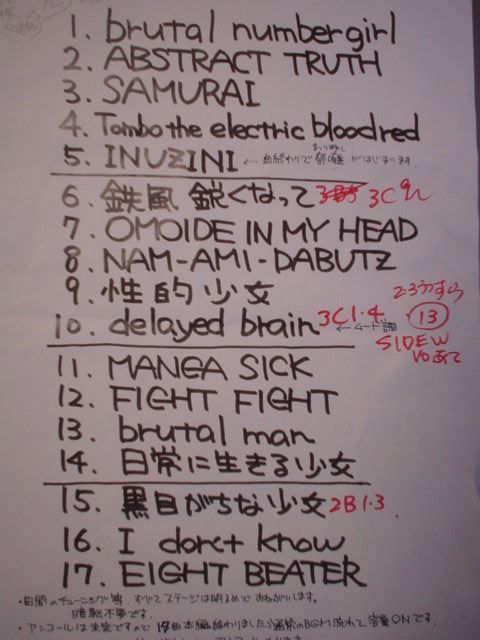 1. brutal numbergirl
2. ABSTRACT TRUTH
3. SAMURAI
4. Tombo the electric bloodred
5. INUZINI ← 曲終わりで祭囃がはじまります.
6. 鉄風 鋭くなって 3C
7. OMOIDE IN MY HEAD
8. NAM-AMI-DABUTZ
9. 性的少女
2.3うすら
10. delayed brain 3C1.4 13
← ムード
SIDE W
11. MANGA SICK
12. FIGHT FIGHT
13. brutal man
14. 日常に生きる少女
15. 黒目がちな少女 2B1.3
16. I don't know
17. EIGHT BEATER
・曲間のチューニング等、すべてステージは明るめでおねがいします.
暗転不要です.
・アンコールは未定ですので 17曲本編終わりましたら通常のBGM流れて客電ONです.